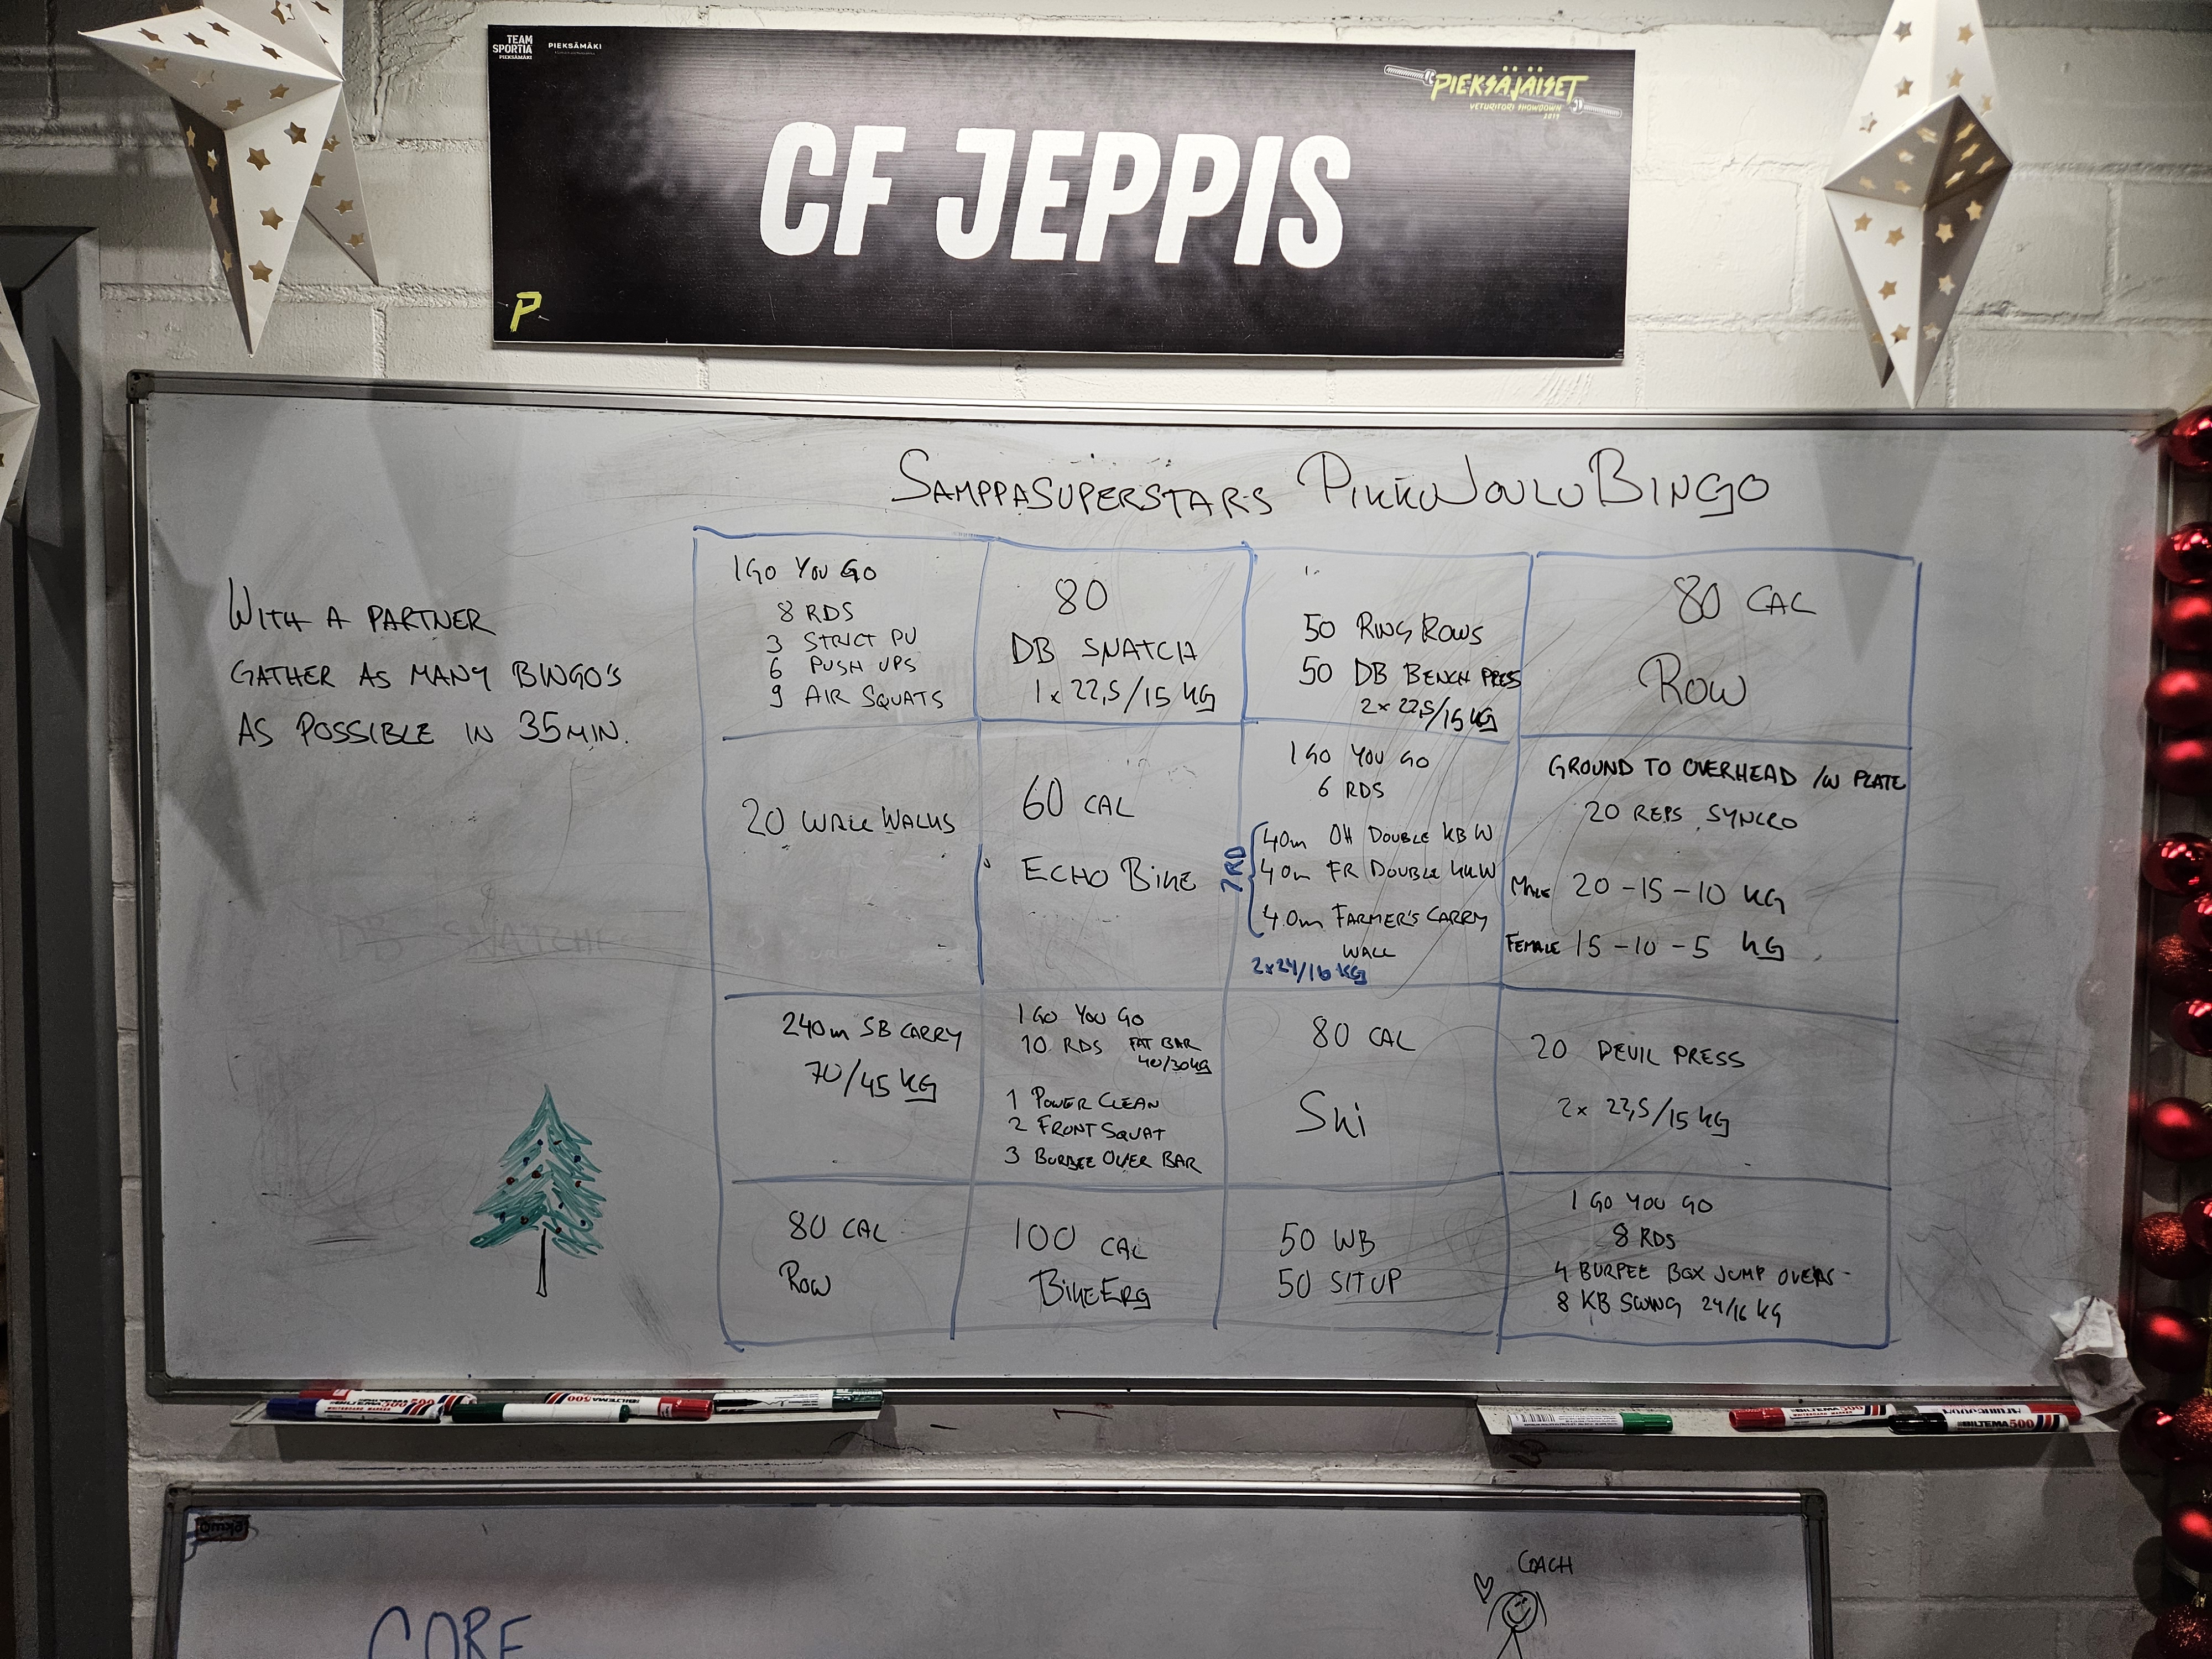 TEAM
SPORTIA
PIEKSÄMÄKI
PIEKSÄMÄKI
PIEKSÄJÄISET
VETURITORI SHOWDOWN
2019
CF JEPPIS
P
SAMPPASUPERSTARS PIKKUJOULUBINGO
WITH A PARTNER
GATHER AS MANY BINGO'S
AS POSSIBLE IN 35MIN.
I GO YOU GO
8 RDS
3 STRICT PU
6 PUSH UPS
9 AIR SQUATS
80
DB SNATCH
1x 22,5/15 KG
50 RING ROWS
50 DB BENCH PRESS
2x 22,5/15 KG
80 CAL
ROW
20 WALL WALKS
60 CAL
ECHO BIKE
I GO YOU GO
6 RDS
40m OH DOUBLE KB W
40m FR DOUBLE KB W
40m FARMER'S CARRY
WALK
2x24/16 KG
GROUND TO OVERHEAD /W PLATE
20 REPS SYNCRO
MALE 20-15-10 KG
FEMALE 15-10-5 KG
240m SB CARRY
70/45 KG
I GO YOU GO
10 RDS FAT BAR
40/30KG
1 POWER CLEAN
2 FRONT SQUAT
3 BURPEE OVER BAR
80 CAL
SKI
20 DEVIL PRESS
2x 22,5/15 KG
80 CAL
ROW
100 CAL
BIKEERG
50 WB
50 SITUP
I GO YOU GO
8 RDS
4 BURPEE BOX JUMP OVERS
8 KB SWING 24/16 KG
DB SNATCH
BILTEMA500
BILTEMA500
BILTEMA500
BILTEMA500
COACH
CORE